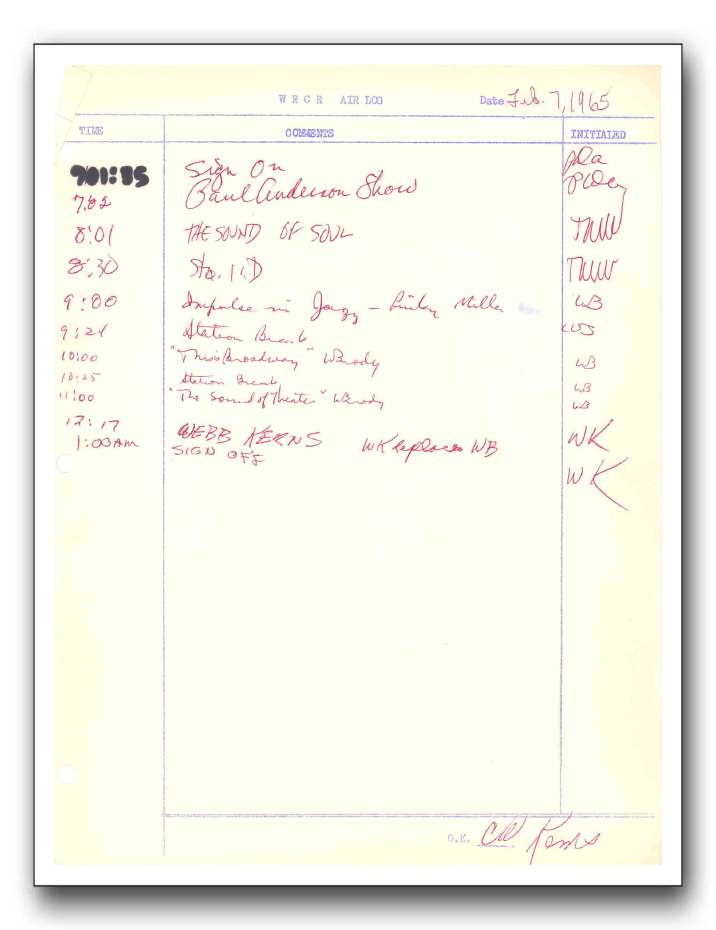 W R C R AIR LOG Date Feb. 7, 1965
TIME COMMENTS INITIALED
Sign On pRa
7:02 Paul Anderson Show
8:01 THE SOUND OF SOUL TNW
8:30 Sta. I.D TNW
9:00 Impulse in Jazz - Miller WB
9:21 Station Break WB
10:00 "This is Broadway" WBrody WB
10:25 Station Break WB
11:00 "The Sound of Theater" WBrody WB
12:17 WEBB KERNS WK Replaces WB WK
1:00 AM SIGN OFF WK
O.K. Kerns